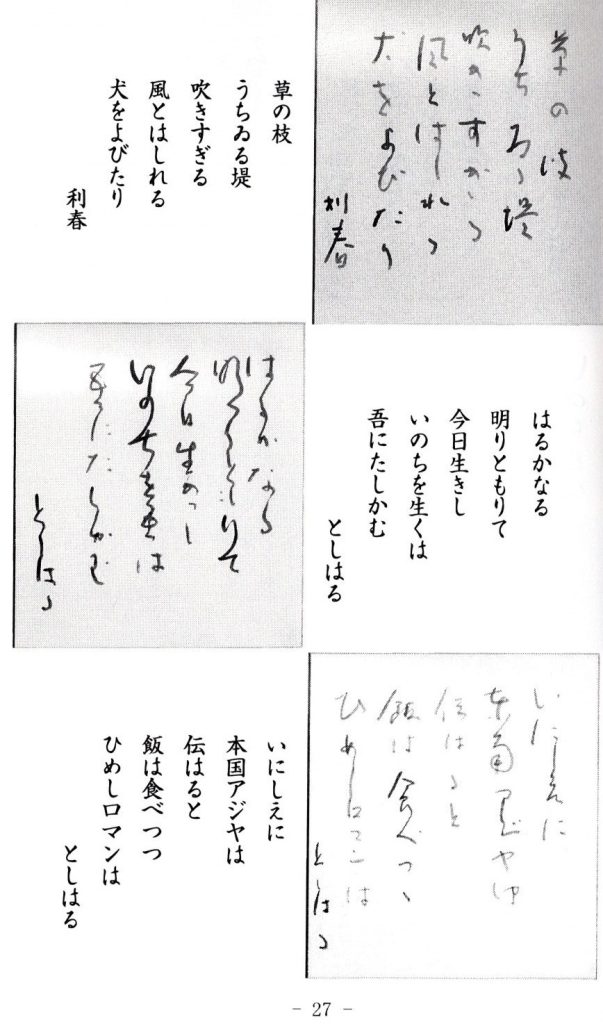 草の枝
うちゐる堤
吹きすぎる
風とはしれる
犬をよびたり
利春
草の枝
うちゐる堤
吹きすぎる
風とはしれる
犬をよびたり
利春
はるかなる
明りともりて
今日生きし
いのちを生くは
吾にたしかむ
としはる
はるかなる
明りともりて
今日生きし
いのちを生くは
吾にたしかむ
としはる
いにしえに
本国アジヤは
伝はると
飯は食べつつ
ひめしロマンは
としはる
いにしえに
本国アジヤは
伝はると
飯は食べつつ
ひめしロマンは
としはる
- 27 -